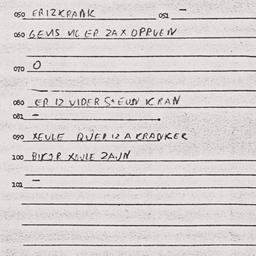 050 ERIZKRANK 051 -
060 GEVIS VIL ER ZAX OPPVEN
070 O
080 ER IZ VIDER STEUN KRAN
081 -
090 XEVLE QVER IZ A KRANKER
100 BIKOR XOVLE ZAJN
101 -